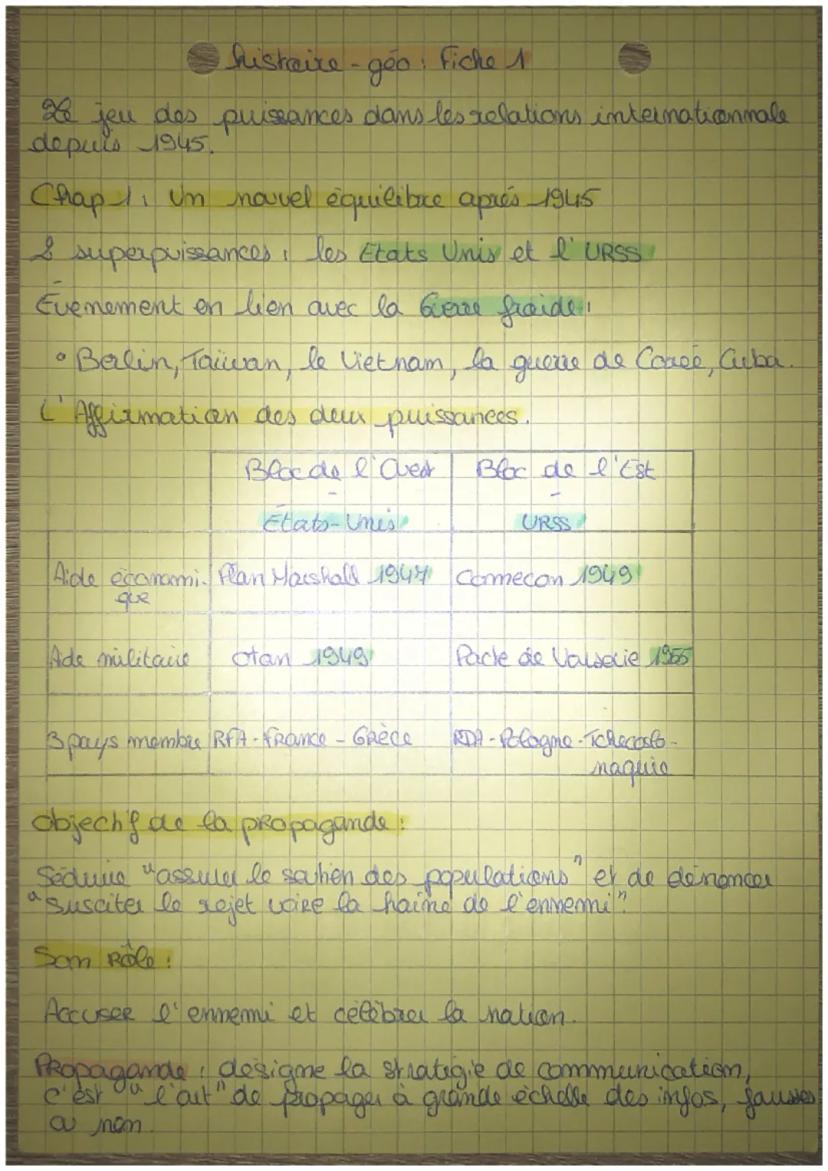 histoire-géo : Fiche 1
Le jeu des puissances dans les relations internationnale
depuis 1945.
Chap 1 : Un nouvel équilibre après 1945
2 superpuissances : les Etats Unis et l'URSS
Évènement en lien avec la Guerre froide :
• Berlin, Taïwan, le Vietnam, la guerre de Coreé, Cuba.
L'Affirmation des deux puissances.
Bloc de l'Ouest - États-Unis
Bloc de l'Est - URSS
Aide économique
Plan Marshall 1947
Comecon 1949
Aide militaire
Otan 1949
Pacte de Varsovie 1955
3 pays membre
RFA - France - Grèce
RDA - Pologne - Tchecoslovaquie
Objectif de la propagande :
Séduire "assurer le soutien des populations" et de dénoncer
"susciter le rejet voire la haine de l'ennemi".
Son Rôle :
Accuser l'ennemi et célébrer la nation.
Propagande : désigne la stratégie de communication,
c'est "l'art" de propager à grande échelle des infos, fausses
ou non.